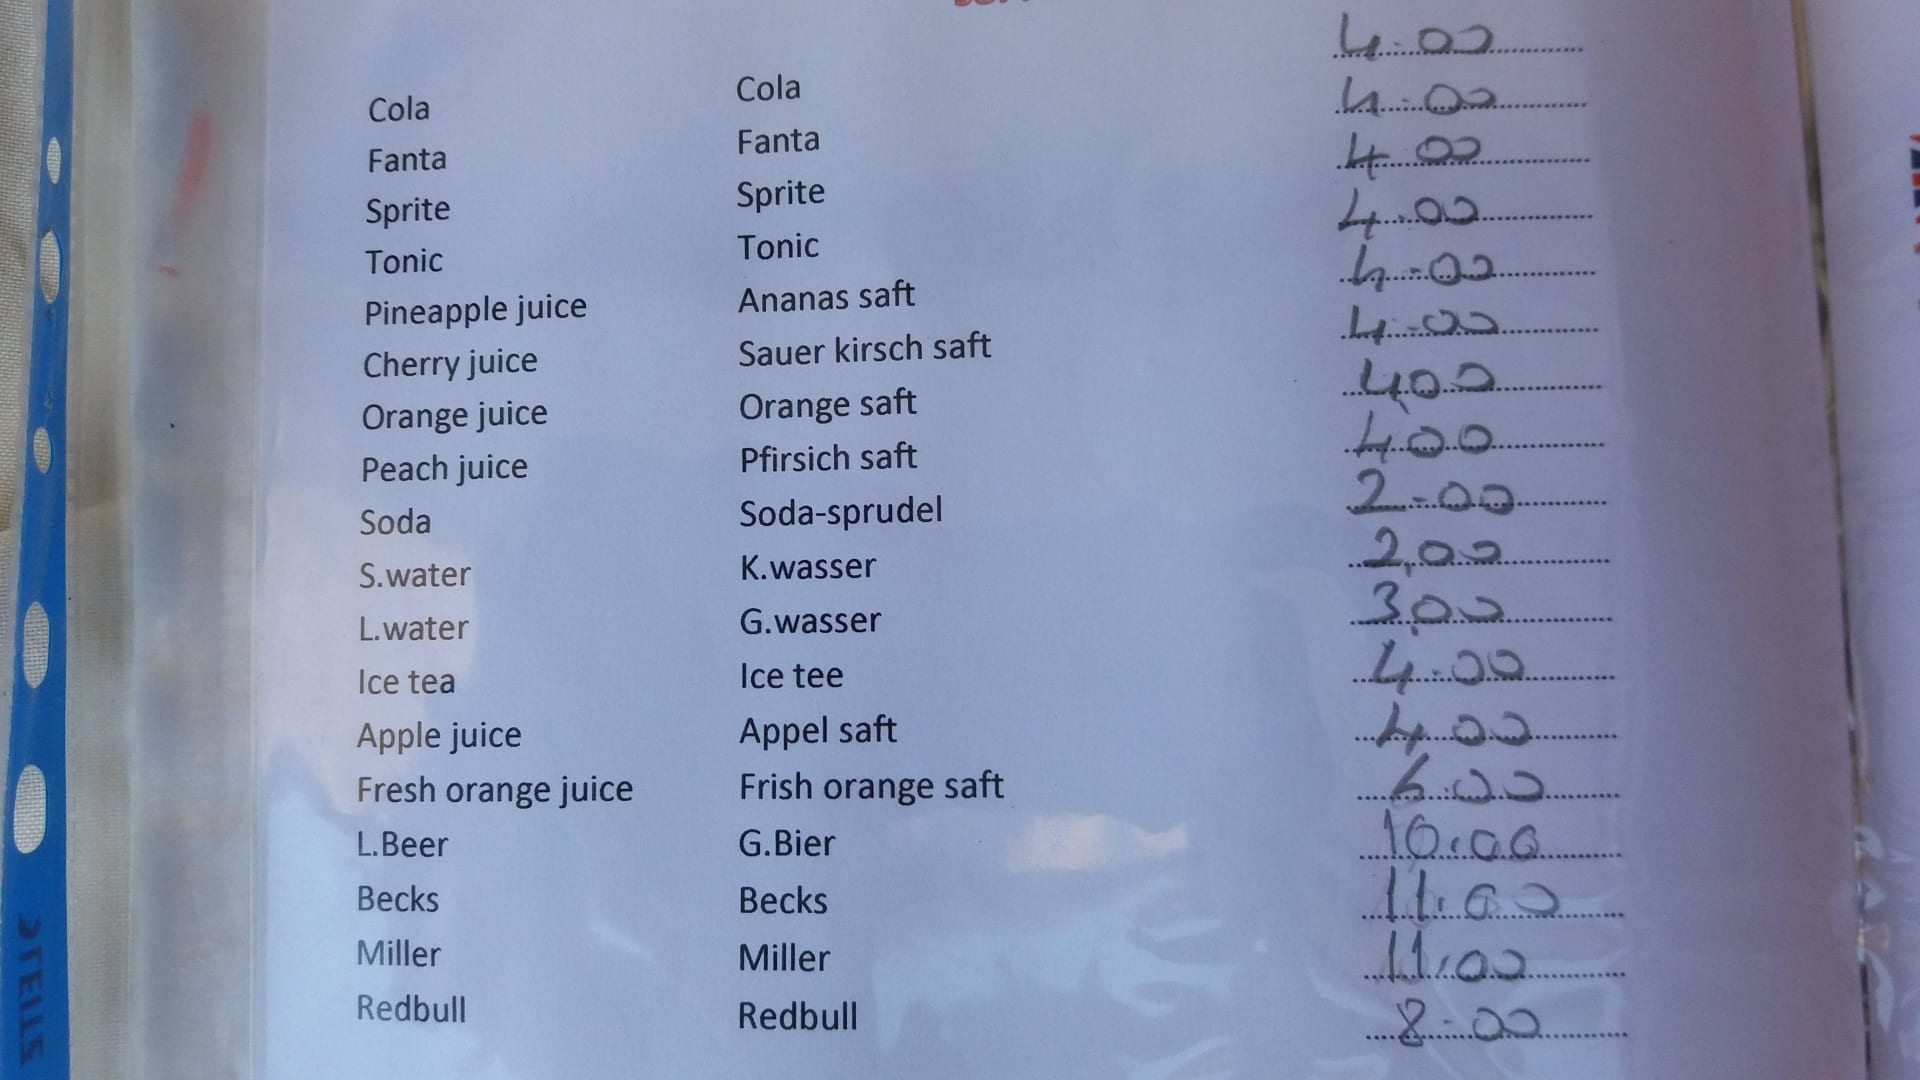 Cola Cola 4.00
Fanta Fanta 4.00
Sprite Sprite 4.00
Tonic Tonic 4.00
Pineapple juice Ananas saft 4.00
Cherry juice Sauer kirsch saft 4.00
Orange juice Orange saft 4,00
Peach juice Pfirsich saft 4,00
Soda Soda-sprudel 2.00
S.water K.wasser 2,00
L.water G.wasser 3,00
Ice tea Ice tee 4.00
Apple juice Appel saft 4.00
Fresh orange juice Frish orange saft 6.00
L.Beer G.Bier 10.00
Becks Becks 11.00
Miller Miller 11.00
Redbull Redbull 8.00